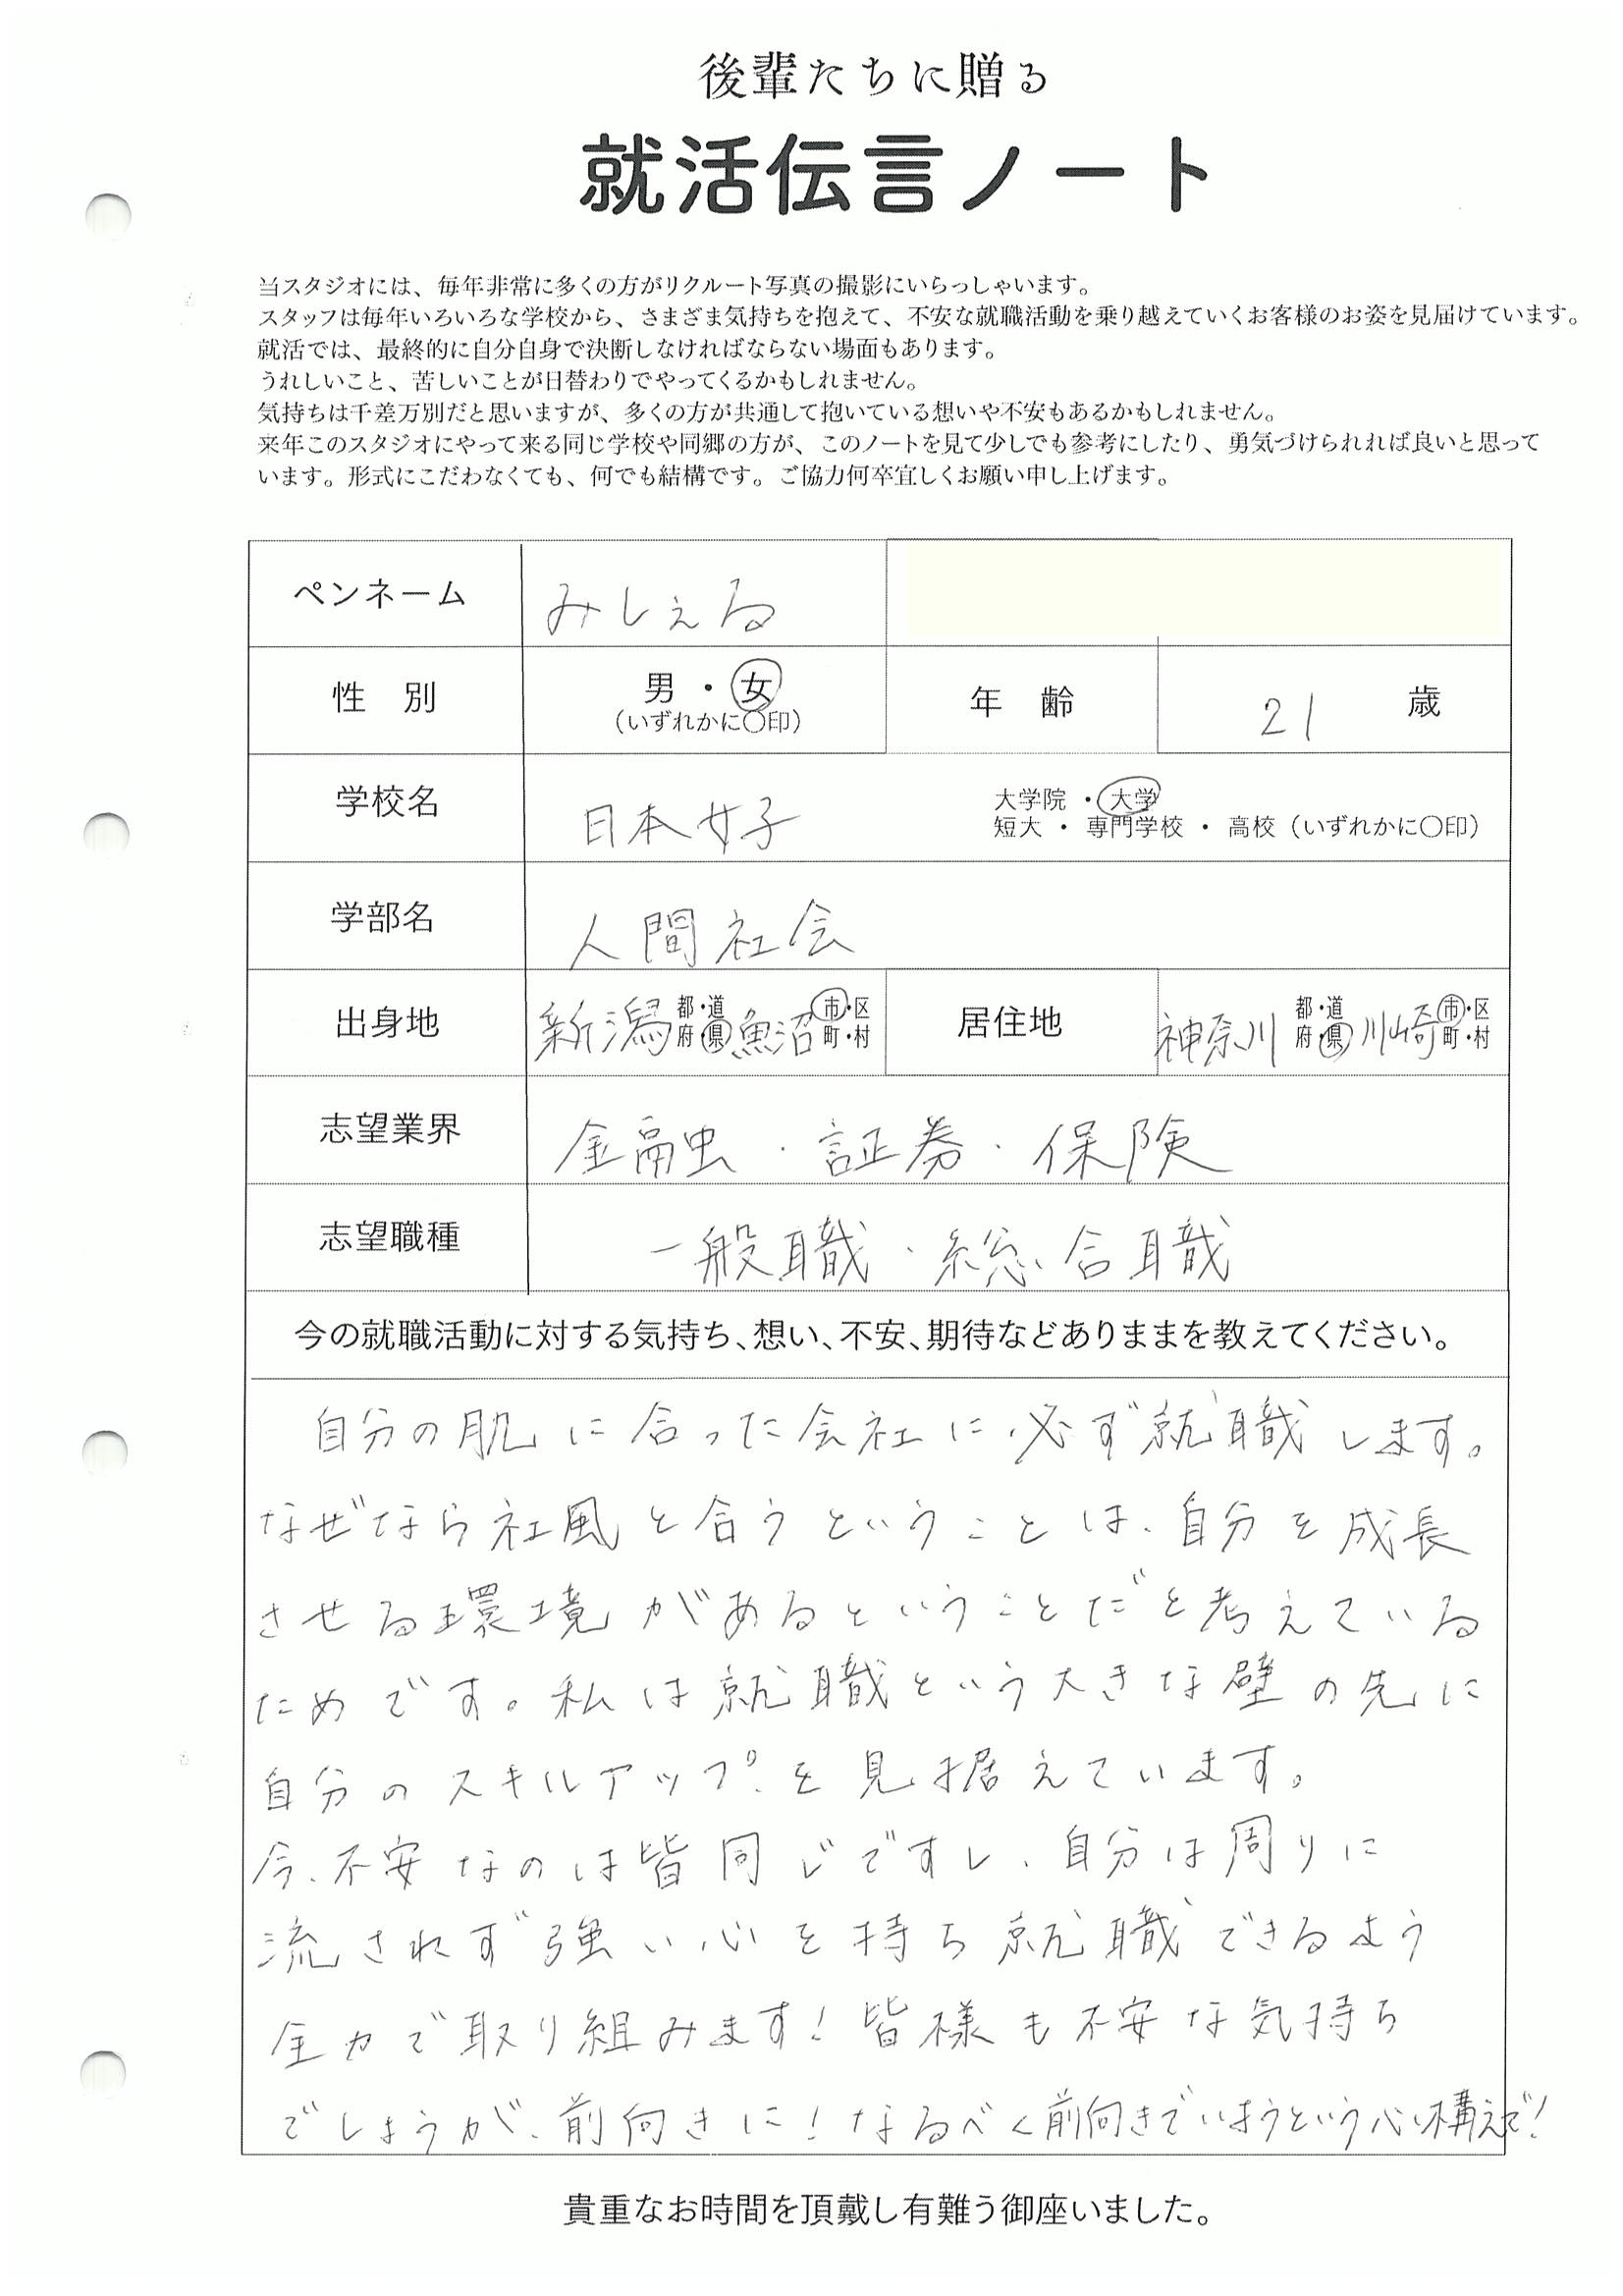 後輩たちに贈る
就活伝言ノート
当スタジオには、毎年非常に多くの方がリクルート写真の撮影にいらっしゃいます。
スタッフは毎年いろいろな学校から、さまざま気持ちを抱えて、不安な就職活動を乗り越えていくお客様のお姿を見届けています。
就活では、最終的に自分自身で決断しなければならない場面もあります。
うれしいこと、苦しいことが日替わりでやってくるかもしれません。
気持ちは千差万別だと思いますが、多くの方が共通して抱いている想いや不安もあるかもしれません。
来年このスタジオにやって来る同じ学校や同郷の方が、このノートを見て少しでも参考にしたり、勇気づけられれば良いと思って
います。形式にこだわなくても、何でも結構です。ご協力何卒宜しくお願い申し上げます。
ペンネーム みしぇる
性 別 男・女 年 齢 21 歳
（いずれかに〇印）
学校名 日本女子 大学院 ・ 大学
短大 ・ 専門学校 ・ 高校（いずれかに〇印）
学部名 人間社会
出身地 新潟 都・道府・県 魚沼 市・区町・村 居住地 神奈川 都・道府・県 川崎 市・区町・村
志望業界 金融・証券・保険
志望職種 一般職・総合職
今の就職活動に対する気持ち、想い、不安、期待などありままを教えてください。
自分の肌に合った会社に必ず就職します。
なぜなら社風と合うということは、自分を成長
させる環境があるということだと考えている
ためです。私は就職という大きな壁の先に
自分のスキルアップを見据えています。
今、不安なのは皆同じですし、自分は周りに
流されず強い心を持ち就職できるよう
全力で取り組みます！皆様も不安な気持ち
でしょうが、前向きに！なるべく前向きでいようという心構えで！
貴重なお時間を頂戴し有難う御座いました。